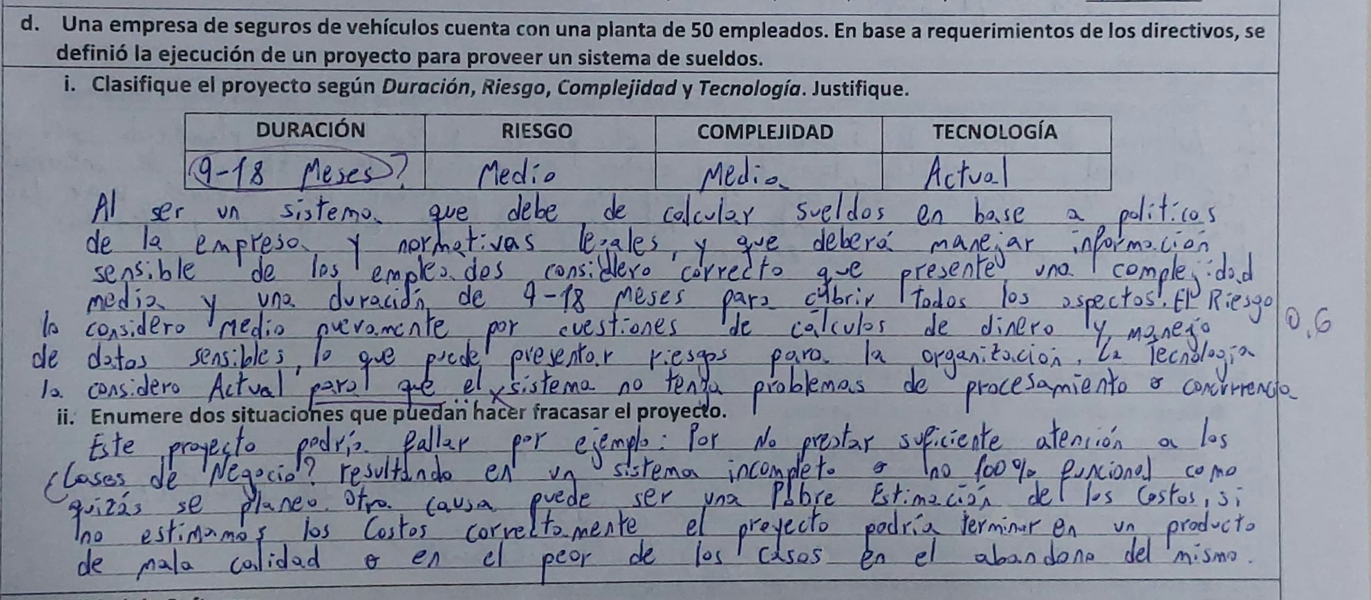 d. Una empresa de seguros de vehículos cuenta con una planta de 50 empleados. En base a requerimientos de los directivos, se
definió la ejecución de un proyecto para proveer un sistema de sueldos.
i. Clasifique el proyecto según Duración, Riesgo, Complejidad y Tecnología. Justifique.
DURACIÓN RIESGO COMPLEJIDAD TECNOLOGÍA
9-18 Meses? Medio Media Actual
Al ser un sistema que debe de calcular sueldos en base a políticas
de la empresa y normativas legales, y que deberá manejar información
sensible de los empleados considero correcto que presente una complejidad
media y una duración de 9-18 meses para cubrir todos los aspectos. El Riesgo
lo considero Medio nuevamente por cuestiones de cálculos de dinero y manejo
de datos sensibles, lo que puede presentar riesgos para la organización. La Tecnología
la considero Actual para que el sistema no tenga problemas de procesamiento o concurrencia
0.6
ii. Enumere dos situaciones que puedan hacer fracasar el proyecto.
Este proyecto podría fallar por ejemplo: Por No prestar suficiente atención a las
Clases de Negocio? resultando en un sistema incompleto o no 100% funcional como
quizás se planeo. Otra causa puede ser una Pobre Estimación de los Costos, si
no estimamos los Costos correctamente el proyecto podría terminar en un producto
de mala calidad o en el peor de los casos en el abandono del mismo.